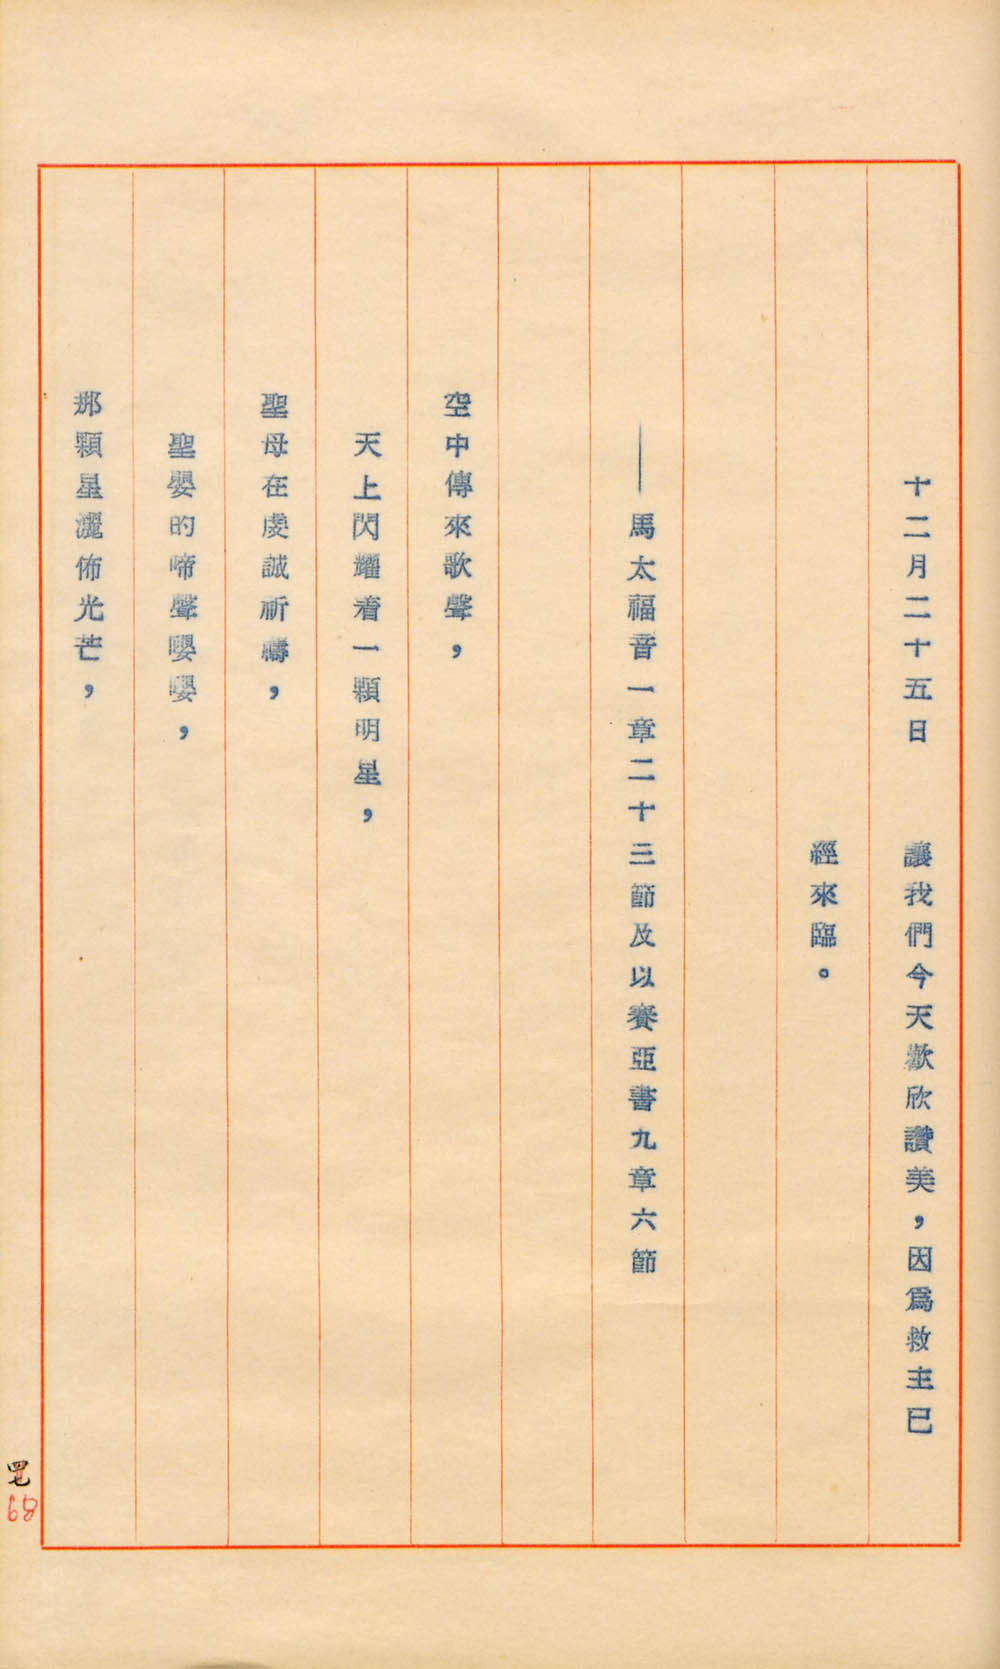 十二月二十五日　讓我們今天歡欣讚美，因爲救主已
經來臨。
——馬太福音一章二十三節及以賽亞書九章六節
空中傳來歌聲，
天上閃耀着一顆明星，
聖母在虔誠祈禱，
聖嬰的啼聲嚶嚶，
那顆星灑佈光芒，
四七
68